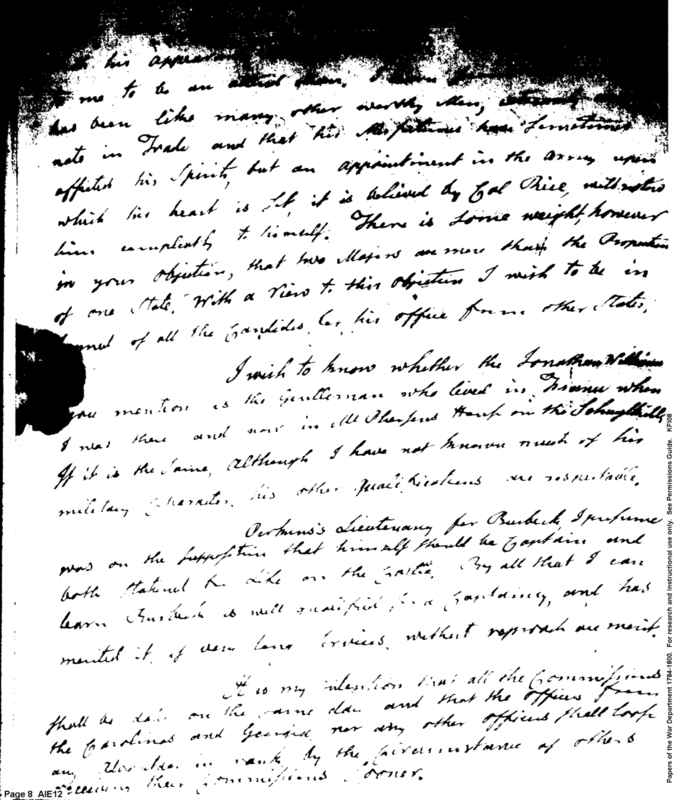 his appearance
to me to be an
has been like many other worthy Men,
nate in Trade and that his Misfortunes have Sometimes
affected his Spirits, but an appointment in the Army upon
which his heart is Set, it is believed by Col Rice, will restore
him compleatly to himself. There is Some weight, however
in your Objection, that two Majors are more than the Proportion
of one State. With a View to this Objection I wish to be in
formed of all the Candidates for his office from other States.
I wish to know whether the Jonathan Williams
you mention is the Gentleman who lived in France when
I was there and now in Mr Phersons House on the Schuylkill,
If it is the Same, Although I have not known much of his
military Character, his other qualifications are respectable.
Perkins's Lieutenancy for Burbeck, I presume
was on the Supposition that himself should be Captain and
both Stationed for Life on the Castle. By all that I can
learn Burbeck is well qualified for a Captaincy, and has
merited it, if very long Services, without reproach are merit.
It is my intention that all the Commissions
shall be dated on the same day and that the officers from
the Carolinas and Georgia, nor any other officers shall loose
any Advantage in rank by the Circumstance of others
receiving their Commissions Sooner.
Page 8 AIE12
Papers of the War Department 1784-1800. For research and instructional use only. See Permissions Guide. KF/08